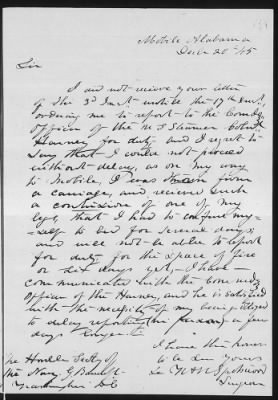 Mobile Alabama
Dec 20th 45
Sir
I did not recieve your letter
of the 3d Inst untill the 17th inst,
ordering me to report to the Comdg
Officer of the U S Steamer Col
Harney for duty and I regret to
say that I could not proceed
without delay, as on my way
to Mobile, I was thrown from
a carriage, and recieved such
a contusion of one of my
legs, that I had to confine my-
-self to bed for several days,
and will not be able to report
for duty for the space of five
or six days yet, I have
communicated with the Comdg
Officer of the Harney, and he is satisfied
with the necessity of my being obliged
to delay reporting (in person) a few
days longer
I have the honor
to be Sir Yours
Surgeon
The Honble Secty of
the Navy G Bancroft
Washington D C